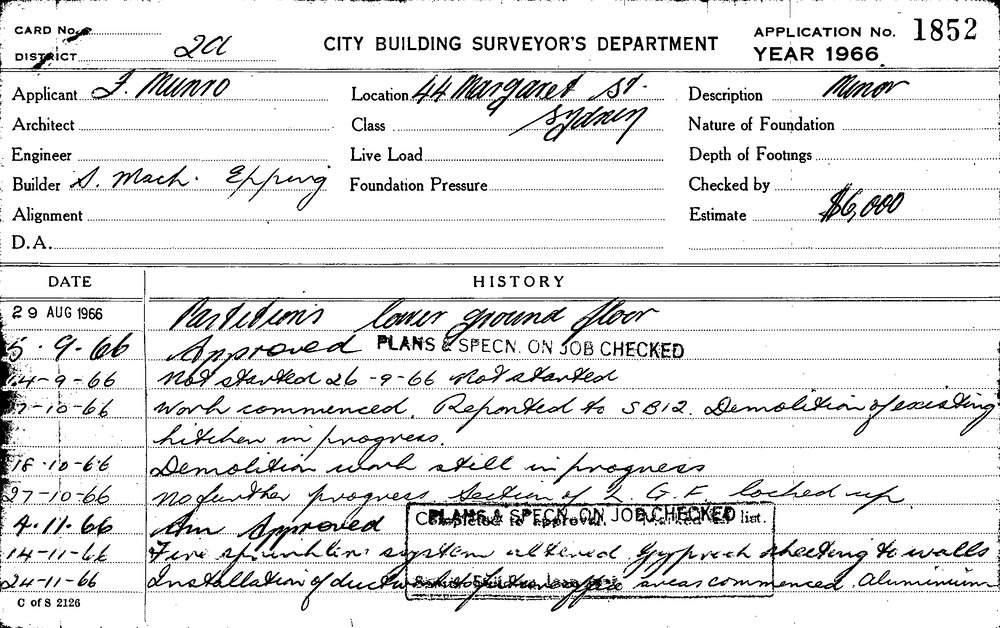 CARD No.
DISTRICT 2a
CITY BUILDING SURVEYOR'S DEPARTMENT
APPLICATION No. 1852
YEAR 1966.
Applicant J. Munro
Location 44 Margaret St.
Sydney
Description Minor
Architect
Class
Nature of Foundation
Engineer
Live Load
Depth of Footings
Builder S. Mach. Epping
Foundation Pressure
Checked by
Alignment
Estimate $6,000
D.A.
DATE HISTORY
29 AUG 1966 Partitions lower ground floor
5.9.66 Approved PLANS & SPECN. ON JOB CHECKED
14-9-66 Not started 26-9-66 Not started
7-10-66 Work commenced. Reported to SB12. Demolition of existing
kitchen in progress.
18-10-66 Demolition work still in progress
27-10-66 No further progress. Section of L.G.F. locked up
4.11.66 Am Approved PLANS & SPECN. ON JOB CHECKED
Completed to approval. list.
14-11-66 Fire sprinkler system altered. Gyprock sheeting to walls
24-11-66 Installation of ducts areas commenced. Aluminium
C of S 2126